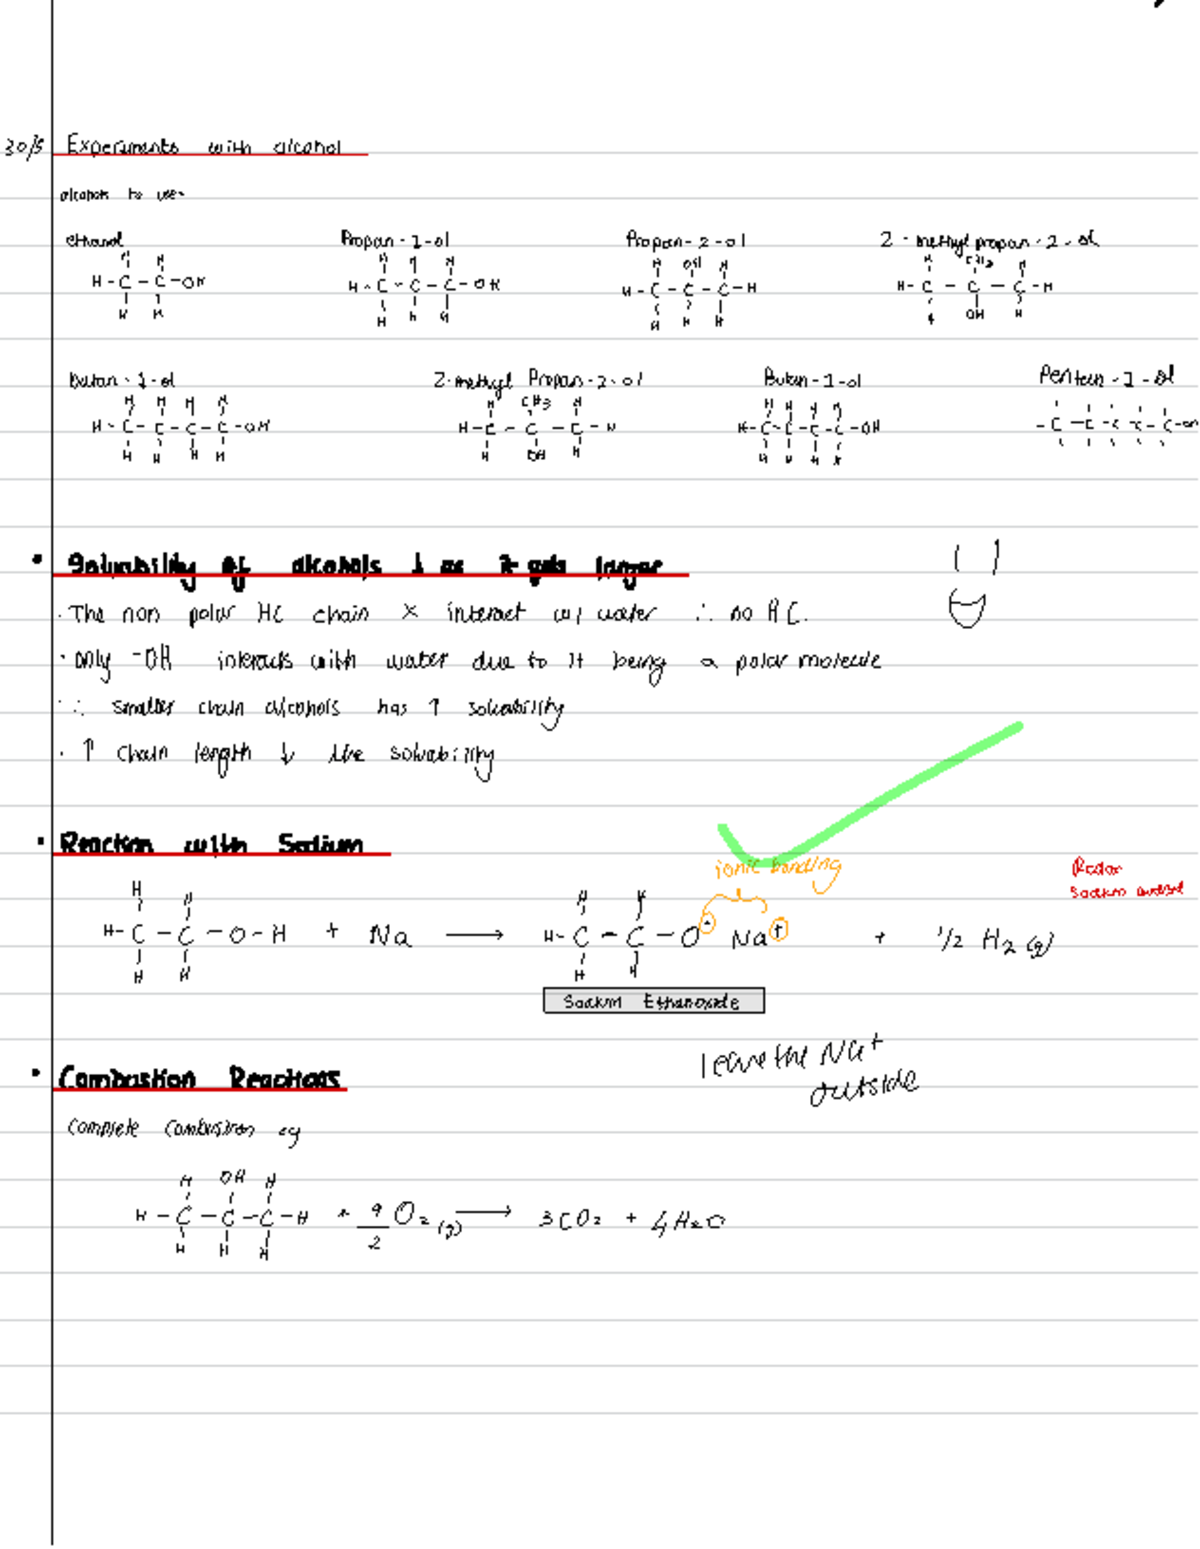 30/5 Experiments with alcohol
alcohols to use-
ethanol Propan-1-ol Propan-2-ol 2-methyl propan-2-ol
H H H H H H OH H H CH3 H
H-C-C-OH H-C-C-C-OH H-C-C-C-H H-C-C-C-H
H H H H H H H H H OH H
butan-1-ol 2-methyl Propan-2-ol Butan-1-ol Pentan-1-ol
H H H H H CH3 H H H H H
H-C-C-C-C-OH H-C-C-C-H H-C-C-C-C-OH -C-C-C-C-C-OH
H H H H H OH H H H H H
• Solubility of alcohols ↓ as it gets larger
· The non polar HC chain × interact w/ water ∴ no
· only -OH interacts with water due to it being a polar molecule
∴ smaller chain alcohols has ↑ solubility
· ↑ chain length ↓ the solubility
• Reaction with Sodium
ionic bonding
H H H H
H-C-C-O-H + Na → H-C-C-O⁻ Na⁺ + 1/2 H2 (g)
H H H H
Sodium Ethanoxide
leave the Na+
outside
• Combustion Reactions
Complete Combustion eg
H OH H
H-C-C-C-H + 9/2 O2 (g) → 3CO2 + 4H2O
H H H